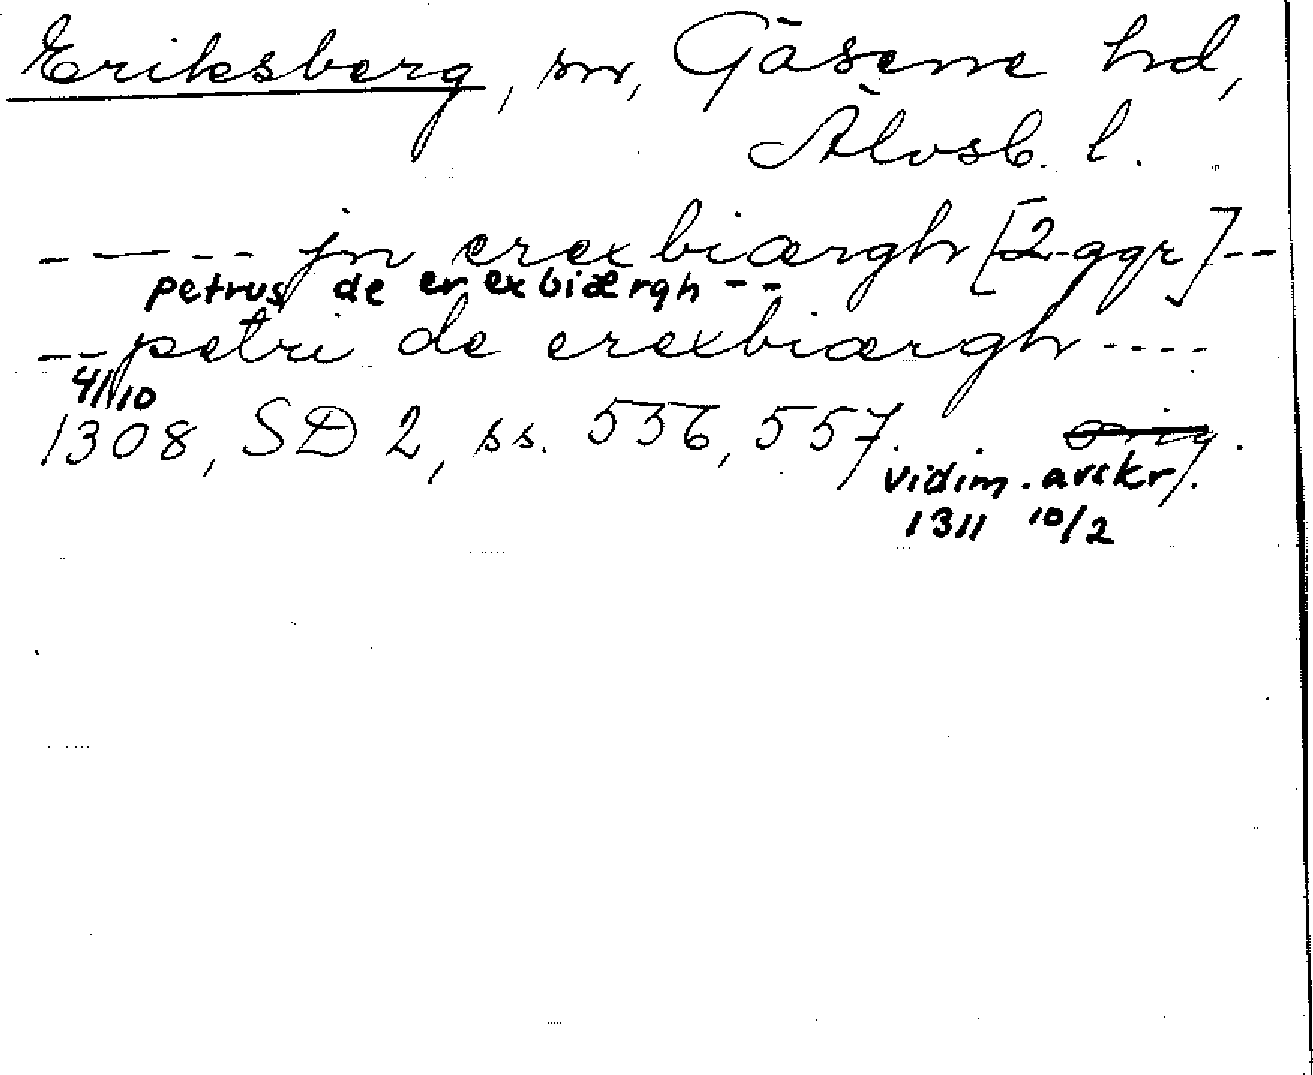 Eriksberg, sn, Gäsene hd,
Älvsb. l.
----- jn erexbiærgh [2 ggr]--
petrus de erexbiærgh --
-- petri de erexbiærgh ----
4/10
1308, SD 2, ss. 556, 557. orig.
vidim. avskr.
1311 10/2